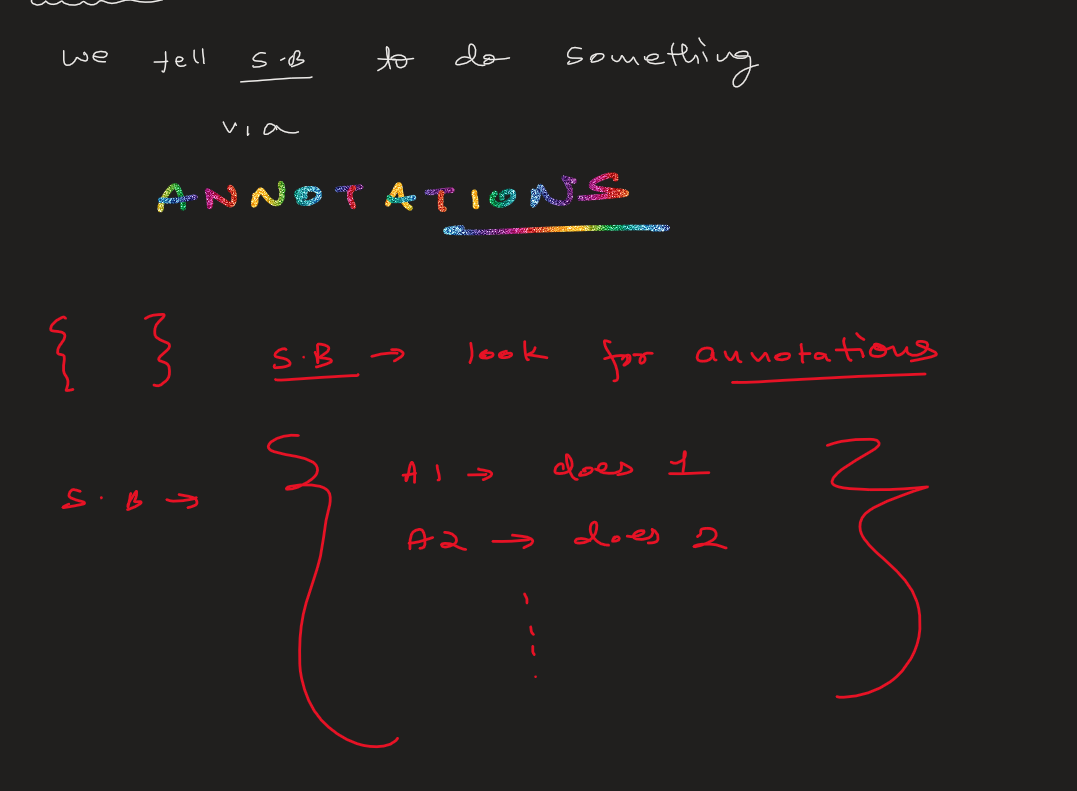 we tell S.B to do something
via
ANNOTATIONS
{ } S.B → look for annotations
S.B → { A1 → does 1
A2 → does 2 }